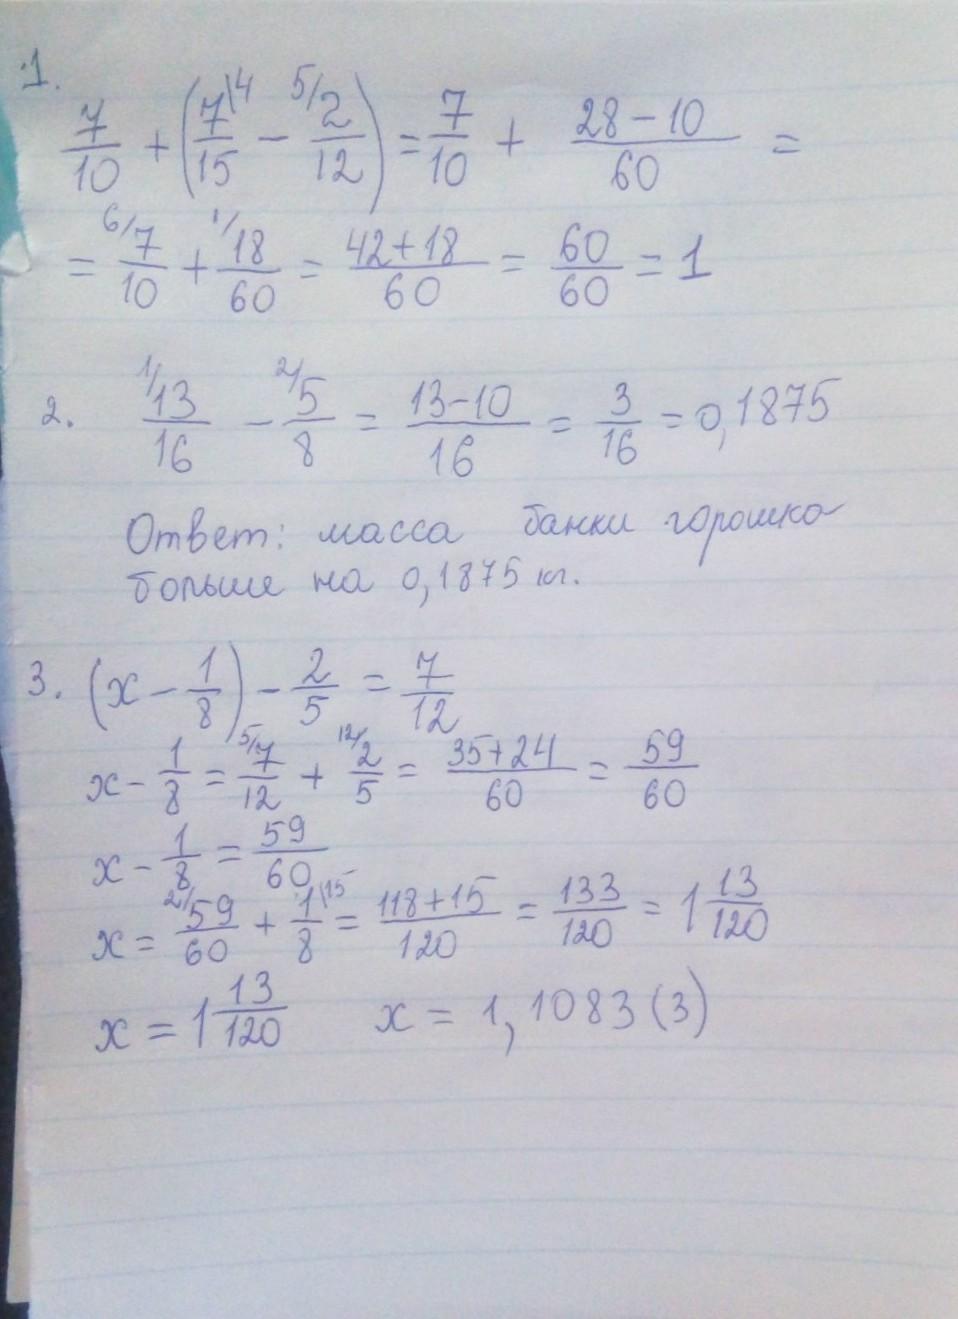 1.
7/10 + (7/15\4 − 5/2/12) = 7/10 + (28−10)/60 =
= 6/7/10 + 1/18/60 = (42+18)/60 = 60/60 = 1
2. 1/13/16 − 2/5/8 = (13−10)/16 = 3/16 = 0,1875
Ответ: масса банки горошка
больше на 0,1875 кг.
3. (x − 1/8) − 2/5 = 7/12
x − 1/8 = 5/7/12 + 12/2/5 = (35+24)/60 = 59/60
x − 1/8 = 59/60
x = 2/59/60 + 1/8\15 = (118+15)/120 = 133/120 = 1 13/120
x = 1 13/120 x = 1,1083(3)